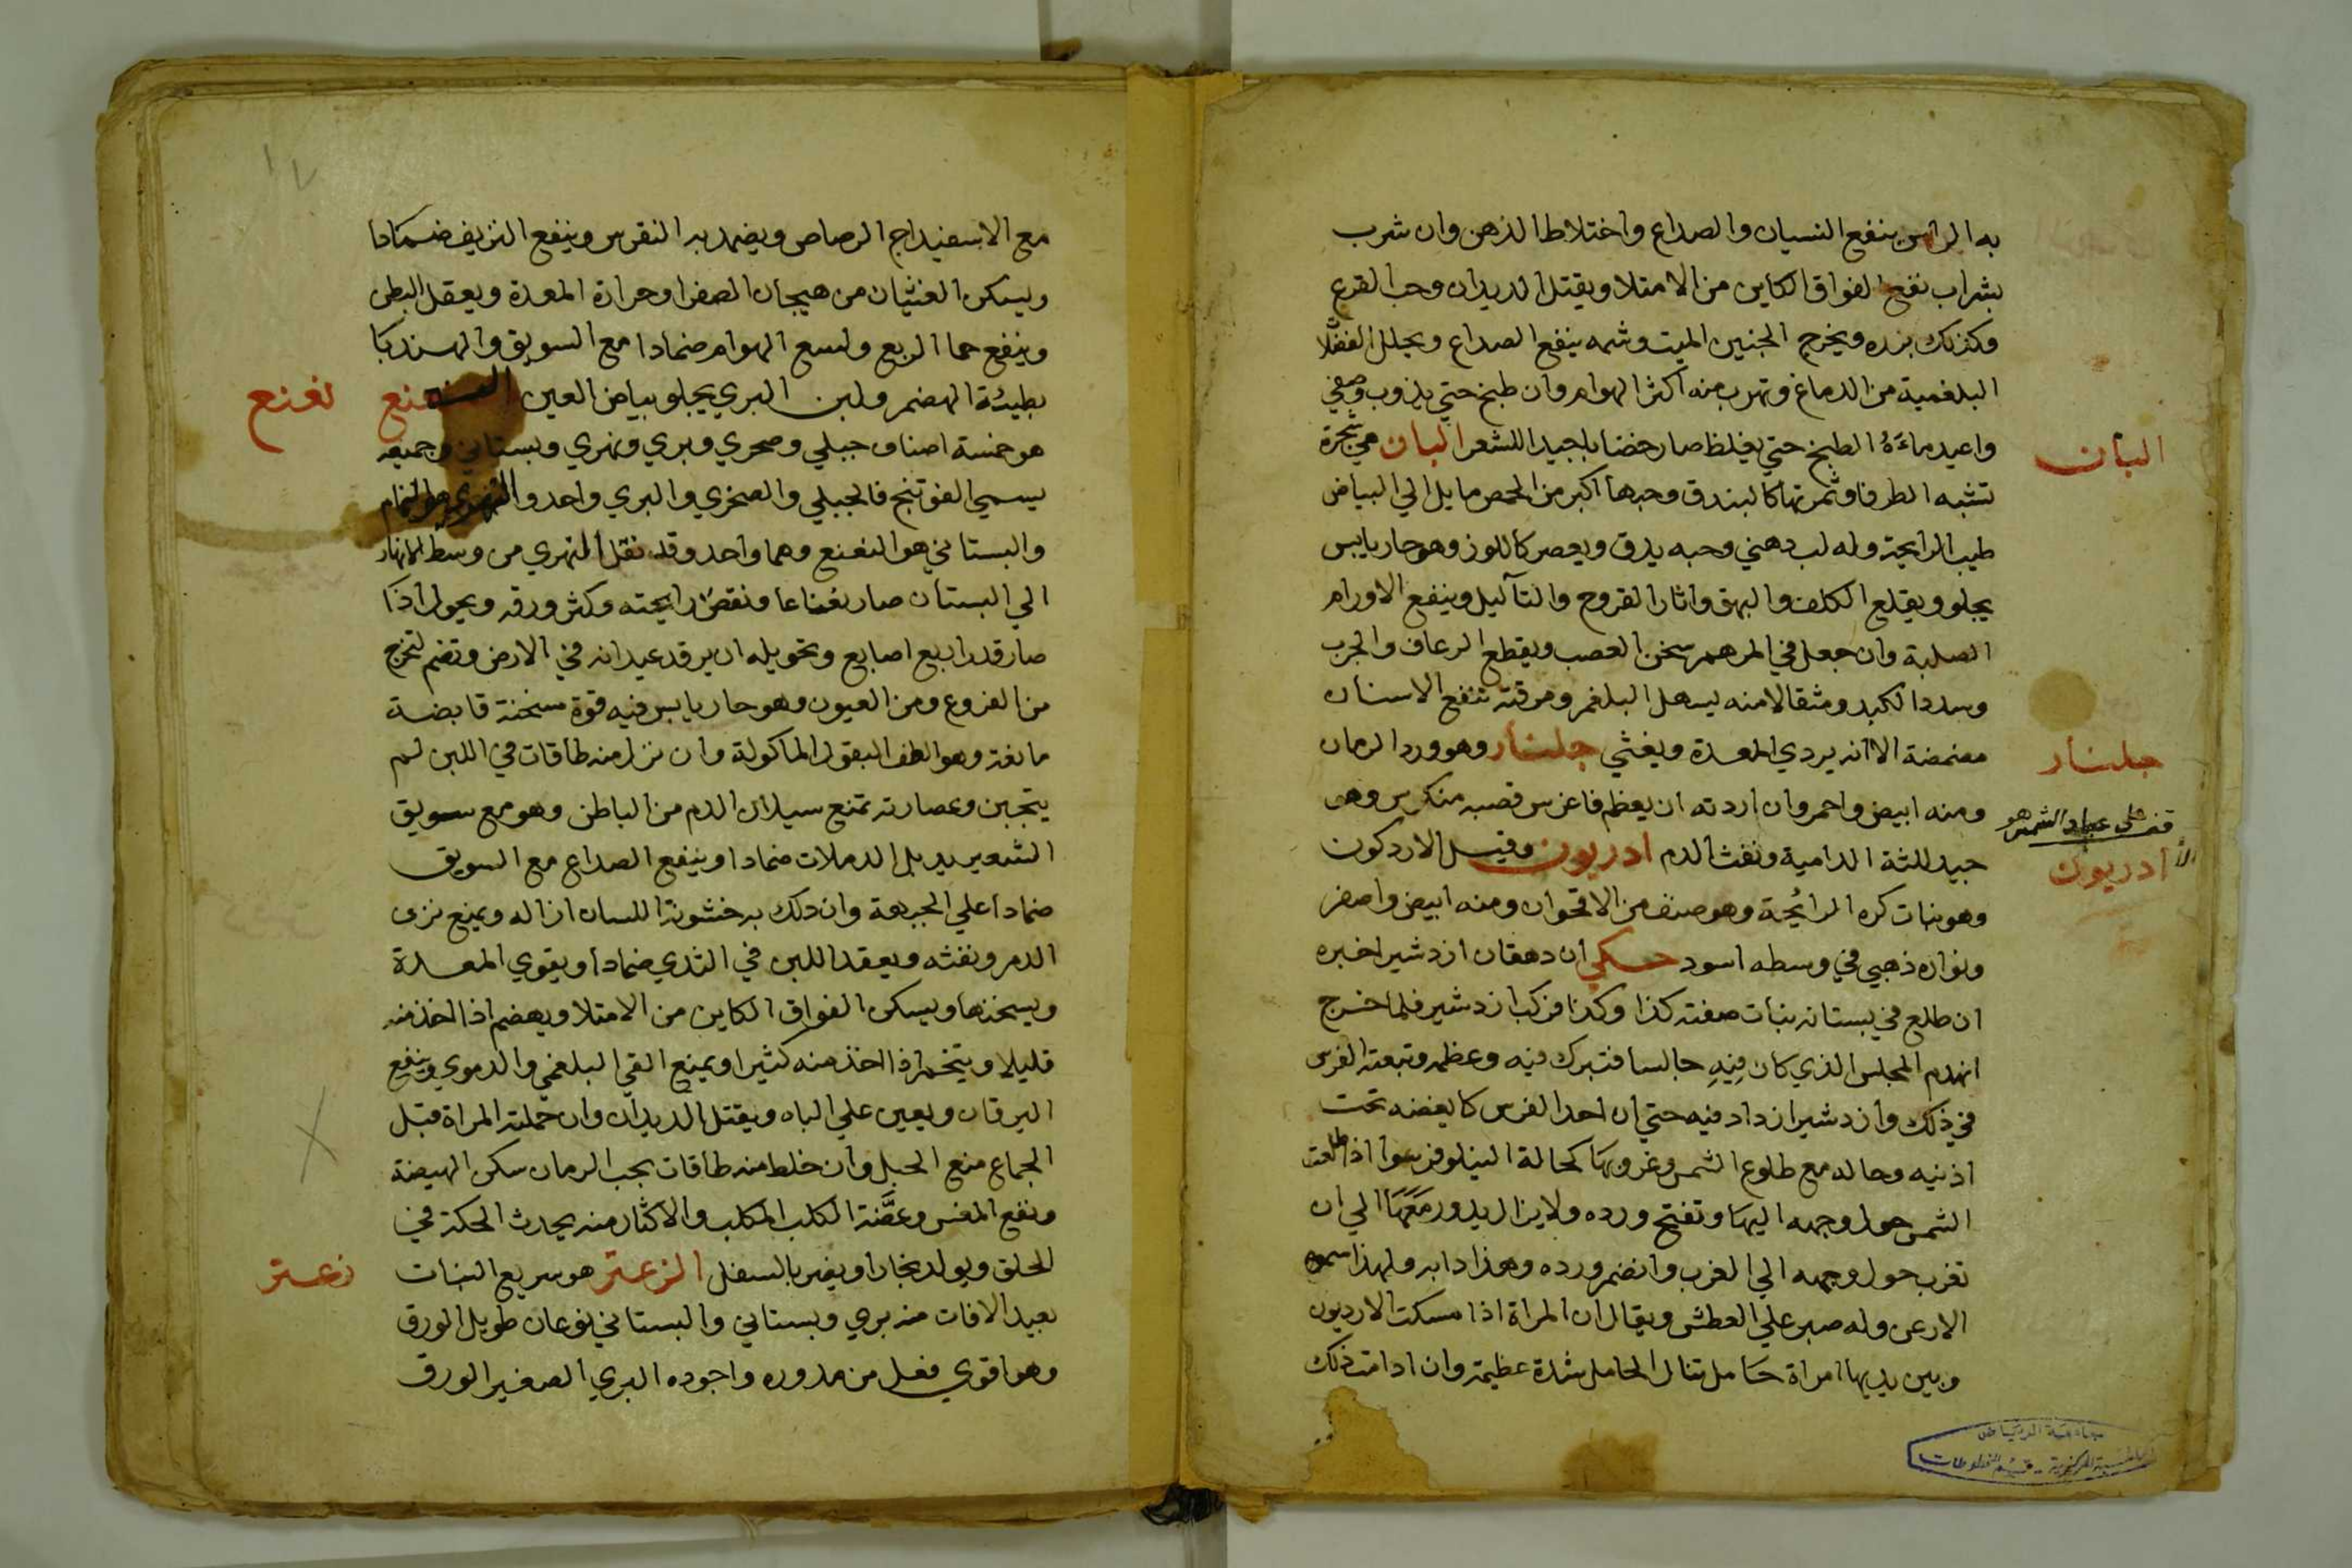 به الراس ينفع النسيان والصداع واختلاط الذهن وان شرب
بشراب نفع الفواق الكاين من الامتلا ويقتل الديدان وحب القرع
وكذلك بزره ويخرج الجنين الميت وشمه ينفع الصداع ويحلل الفضلا
البلغمية من الدماغ وتهرب منه اكثر الهوام وان طبخ حتي يذوب وصفي
واعيد ماءه الطبخ حتي يغلظ صار خضابا جيدا للشعر البان هي شجرة
تشبه الطرفا وثمرتها كالبندق وحبها اكبر من الحمص مايل الي البياض
طيب الرايحة وله لب دهني وحبه يدق ويعصر كاللوز وهو حار يابس
يجلو ويقلع الكلف والبهق واثار القروح والتآليل وينفع الاورام
الصلبة وان جعل في المرهم سخن العصب ويقطع الرعاف والجرب
وسدد الكبد ومثقالا منه يسهل البلغم ومرقته تنفع الاسنان
مضمضة الا انه يردي المعدة ويغثي جلنار وهو ورد الرمان
ومنه ابيض واحمر وان اردته ان يعظم فاغرس قصبه منكوس وهو
جيد للثة الدامية ونفث الدم ادريون وقيل الاردكون
وهو نبات كره الرائحة وهو صنف من الاقحوان ومنه ابيض واصفر
ونواره ذهبي في وسطه اسود حكي ان دهقان ازدشير اخبره
ان طلع في بستانه نبات صفته كذا وكذا فركب ازدشير فلما خرج
انهدم المجلس الذي كان فيه جالسا فتبرك فيه وعظمه وتبعته الفرس
في ذلك وازدشير ازداد فيه حتي ان احد الفرس كا يغضه تحت
اذنيه وحاله مع طلوع الشمس وغروبها كحالة النيلوفر سوا اذا طلعت
الشمس حول وجهه اليها وتفتح ورده ولا يزال يدور معها الي ان
تغرب حول وجهه الي الغرب وانضم ورده وهذا دابه ولهذا سموه
الارعن وله صبر علي العطش ويقال ان المراة اذا مسكت الارديون
وبين يديها امراة حامل تنال الحامل شدة عظيمة وان ادامت ذلك
البان
جلنار
عباد الشمس هو
الا ادريون
جامعة الرياض
المكتبة المركزية - قسم المخطوطات
١٧
مع الاسفيداج الرصاص ويضمد به النقرس وينفع النزيف ضمادا
ويسكن الغثيان من هيجان الصفرا وحرارة المعدة ويعقل البطن
وينفع حما الربع ولسع الهوام ضمادا مع السويق والهندبا
بطيئة الهضم ولبن البري يجلو بياض العين النعنع
هو خمسة اصناف جبلي وصحري وبري ونهري وبستاني وجميعه
يسمي الفوتنج فالجبلي والصخري والبري واحد والنهري هو النمام
والبستاني هو النعنع وهما واحد وقد نقل النهري من وسط الانهار
الي البستان صار نعناعا ونقص رايحته وكثر ورقه ويحول اذا
صار قدر اربع اصابع وتحويله ان يرقد عيدانه في الارض وتضم لتخرج
من الفروع ومن العيون وهو حار يابس فيه قوة مسخنة قابضة
مانعة وهو الطف البقول الماكولة وان نزل منه طاقات في اللبن لم
يتجبن وعصارته تمنع سيلان الدم من الباطن وهو مع سويق
الشعير يدبل الدملات ضمادا وينفع الصداع مع السويق
ضمادا علي الجبهة وان دلك به خشونة اللسان ازاله ويمنع نزف
الدم ونفثه ويعقد اللبن في الثدي ضمادا ويقوي المعدة
ويسخنها ويسكن الفواق الكاين من الامتلا ويهضم اذا اخذ منه
قليلا ويتخم اذا اخذ منه كثيرا ويمنع القي البلغمي والدموي وينفع
اليرقان ويعين علي الباه ويقتل الديدان وان حملته المراة قبل
الجماع منع الحبل وان خلط منه طاقات بحب الرمان سكن الهيضة
ونفع المغس وعضة الكلب المكلب والاكثار منه يحدث الحكة في
الحلق ويولد بخارا ويضر بالسفل الزعتر هو سريع النبات
بعيد الافات منه بري وبستاني والبستاني نوعان طويل الورق
وهو اقوي فعل من مدوره واجوده البري الصغير الورق
نعنع
زعتر